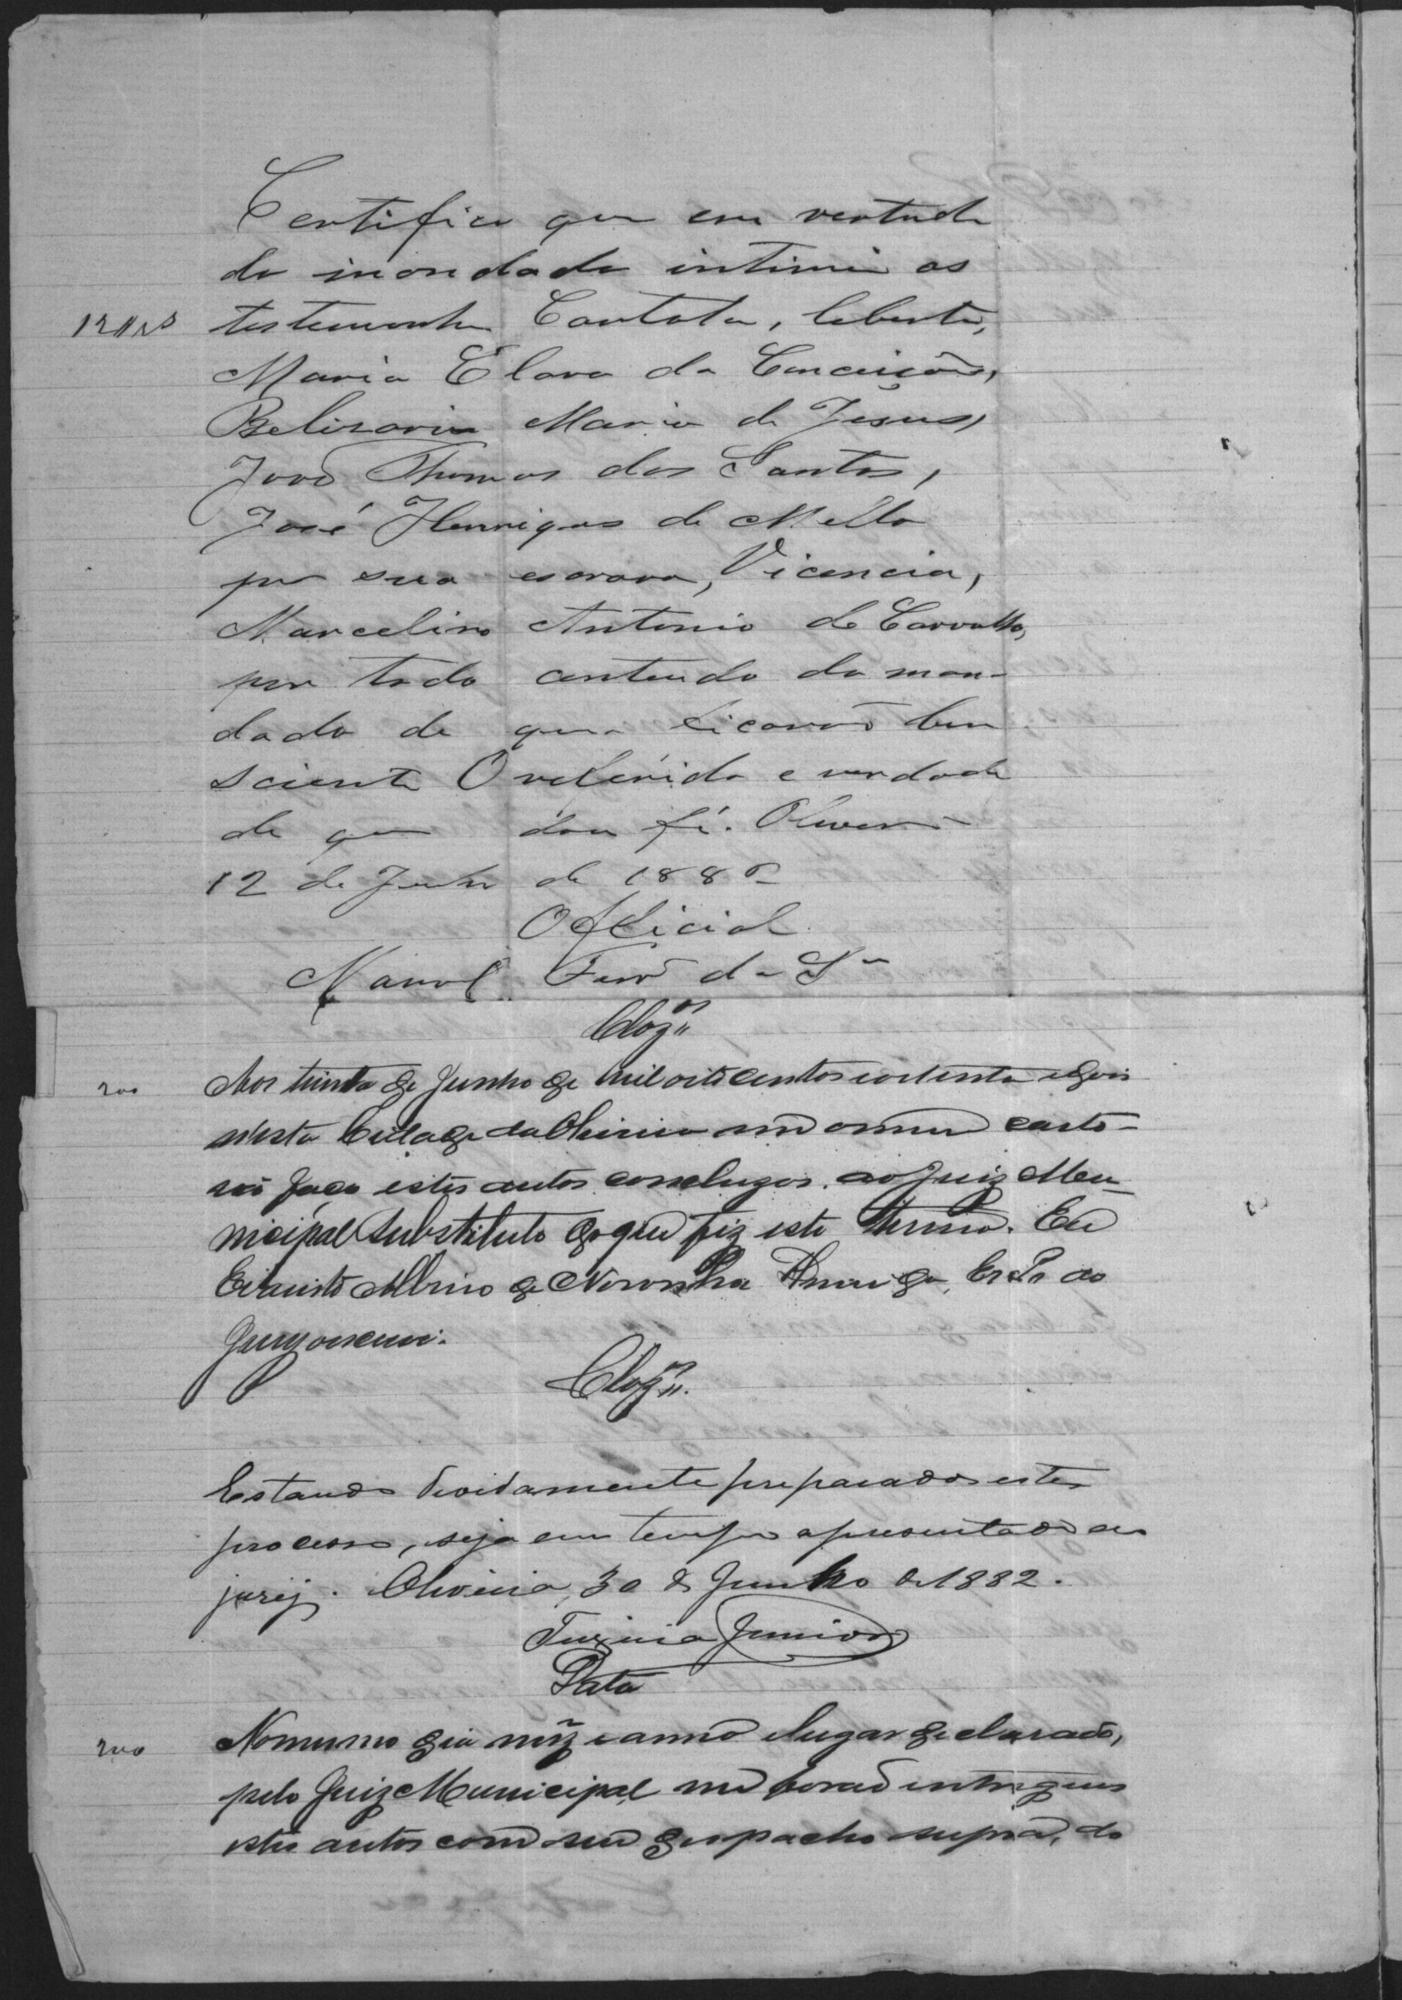 Certifico que em vertude
do mandado intimei as
testemunha Cantata, liberta,
Maria Clara da Conceicão,
Belizaria Maria de Jesus,
João Thomas dos Santos,
José Henriques de Mello
por sua escrava, Vicencia,
Marcelino Antonio de Carvalho,
por todo conteudo do man-
dado de que ficarão bem
sciente O referido e verdade
de que dou fé. Oliveira
12 de Junho de 1882
Official
Manoel Ferrª da Sª
Clzm
200
Aos trinta de Junho de mil oito centos eoitenta edois
nésta Cidade da Oliveira em o meu carto-
rio faço estes autos conclusos ao Juiz Mu-
nicipal Substituto doque fiz este termo. Eu
Evaristo Albino de Noronha Escr do
Jury oescrevi.
Clzm
Estando devidamente preparado este
processo, seja em tempo apresentado ao
jury. Oliveira, 30 de Junho de 1882.
Teixeira Junior
Data
200
No mesmo dia mez e anno elugar declarado,
pelo Juiz Municipal me forão entregues
estes autos com seu despacho supra, do